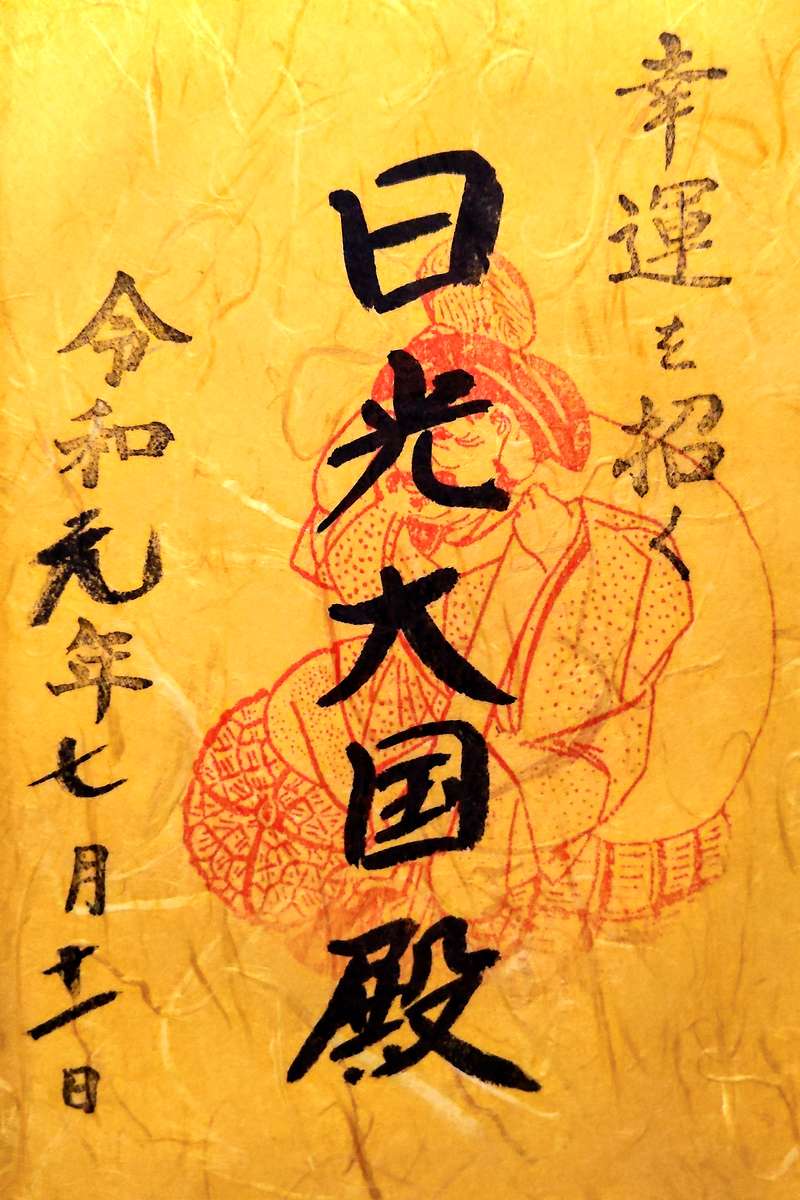 幸運を招く
日光大国殿
令和元年七月十一日